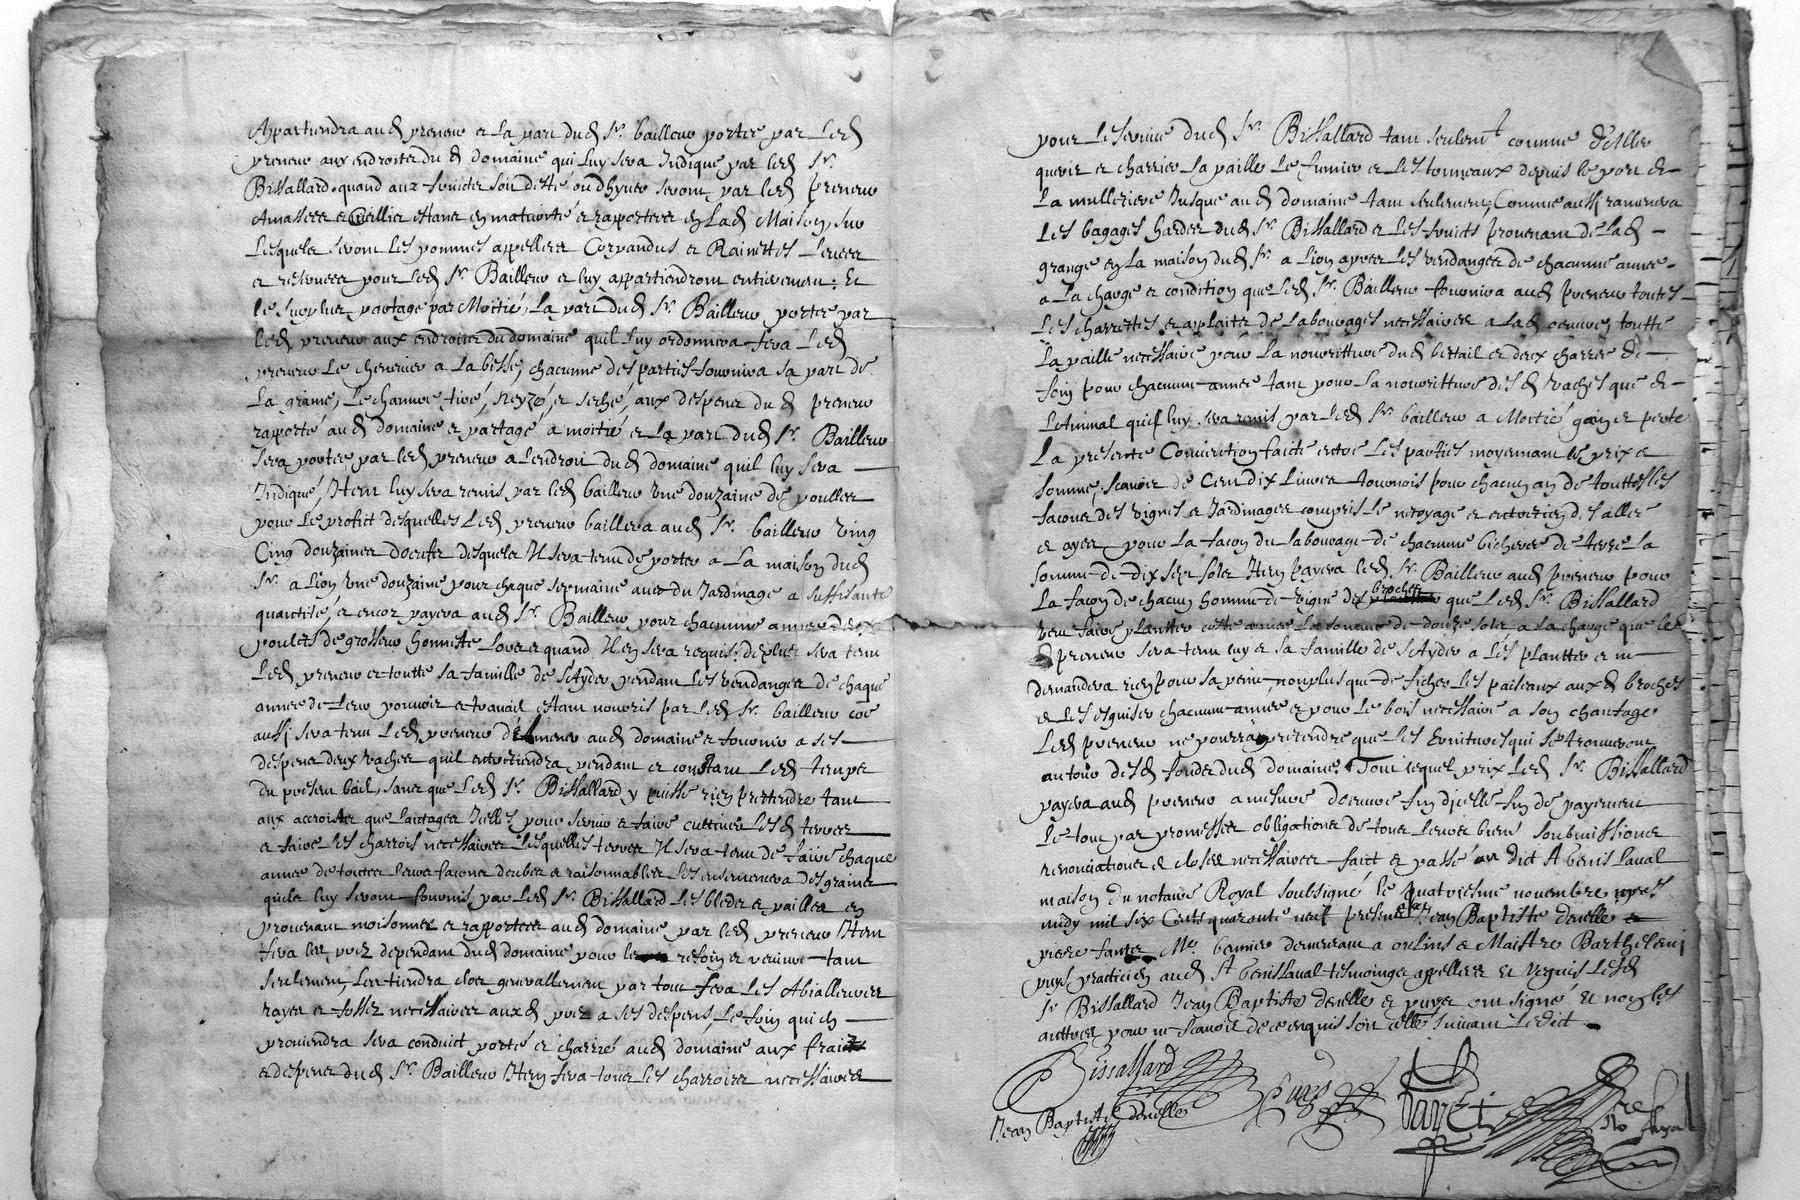 Appartiendra aud preneur et la part dud Sr. bailleur portee par led
preneur aux endroits du d domaine qui luy sera Indiqué par led Sr.
Bissallard, quand aux fruicts soit desté ou dhyver seront par led preneur
Amasses et Ceillir estans en maturité et rapportees en lad Maison, sur
lesquels seront les pommes appellees Corpandus et Rainettes levees
et reservees pour led Sr. Bailleur et luy appartiendront entierement; Et
le surplus partagé par Moitié, La part dud Sr. Bailleur portee par
led preneur aux endroits du domaine quil luy ordonnera fera led
preneur le chenevier a la besse, chacunne des parties fournira sa part de
la graine, Le chanvre tiré, Neyzé, et seché, aux despens du d preneur
rapporté aud domaine et partagé a moitié et la part dud Sr. Bailleur
sera portee par led preneur a lendroit dud domaine quil luy sera
Indiqué, Item luy sera remis par led bailleur Une douzaine de poulles
pour le profit desquelles led preneur baillera aud Sr. bailleur vingt
Cinq douzaines doeufs desquels Il sera tenu de porter a la maison dud
Sr. a Lion Une douzaine pour chaque sepmaine avec du Jardinage a suffisante
quantité, et encor payera aud Sr. Bailleur pour chacunne annee deux
poulets de grosseur honneste lors et quand Il en sera requis; deplus sera tenu
Led preneur et toutte sa famille de Sayder pendant les vendanges de chaque
annee de leur pouvoir et travail estant nouris par led Sr. bailleur coe
aussi sera tenu Led preneur damener aud domaine et fournir a ses
despens deux vaches quil entretiendra pendant et constant led temps
du present bail, sans que Led Sr. Bissallard y puisse rien pretendre tant
aux accroists que laictages Icelles pour servir et faire cultiver les d terres
et faire les charrois necessaires lesquelles terres Il sera tenu de faire chaque
annee de touttes leurs façons deubes et raisonnables les ensemencera des graines
quils luy seront fournis par led Sr. Bissallard les bleds et pailles en
provenant moisonner et rapportees aud domaine par led preneur Item
fera les prez dependant dud domaine pour le resoin et reviure tant
seulement, les tiendra clos generallement par tout fera les Abialleures
rayes et fossez necessaires aux d prez a ses despens, Le foin qui en
proviendra sera conduict porté et charrié aud domaine aux fraicts
et despens dud Sr. Bailleur Item fera tous les charroirs necessaires
pour le service dud Sr. Bissallard tant seulent comme dAller
querir et charrier la paille le fumier et les tonneaux depuis le port de
la mulletiere Jusque aud domaine tant seulement, Comme aussi ramenera
les bagages hardes dud Sr. Bissallard et les fruicts provenant de lad
grange en la maison dud Sr. a Lion apres les vendanges de chacunne annee
a la charge et condition que led Sr. Bailleur fournira aud preneur touttes
les charrettes et applaits de labourages necessaires a lad oeuvre, toutte
la paille necessaire pour la nourritture dud bestail et deux charres de
foin pour chacunne annee tant pour la nourritture des d vaches que de
lAnimal quil luy sera remis par led Sr. bailleur a Moitié gain et perte
La presente Convention faicte entre les parties moyennant le prix et
somme, scavoir de Cent dix Livres tournois pour chacun an de touttes les
façons des vignes et Jardinages compris le netoyage et entretien des allees
et ayes pour la façon du labourage de chacunne bicheree de terre la
somme de dix sept sols Item payera led Sr. Bailleur aud preneur pour
la façon de chacun homme de vigne des broches que Led Sr. Bissallard
veut faire plantter cette annee la somme de douze sols a la charge que led
preneur sera tenu luy et sa famille de Sayder a les plantter et ne
demandera rien pour sa peine, nonplus que de ficher les paiseaux aux d broches
et les esguiser chacunne annee et pour le bois necessaire a son chaufage
Led preneur ne pourra pretendre que les Ernitures qui se trouveront
autour des d fonds dud domaine; Tout lequel prix Led Sr. Bissallard
payera aud preneur a mesure doeuvre fin dicelle fin de payement
Le tout par promesses obligations de tous leurs biens soubmissions
renonciations et closes necessaires faict et passé au dict St Genis Laval
maison du notaire Royal soubsigné le quatriesme novembre apres
midy mil six Cents quarante neuf presens Jean Baptiste denelle et
pierre Me bennier demeurant a oulins et Maistre Barthelemi
puys practicien aud St Genis Laval tesmoings appelles et requis lesd
Sr Bissallard Jean Baptiste denelle et puys ont signé et non les
auttres pour ne scavoir de ce enquis soit cellé suivant ledict.
Bissallard
puys
Jean Baptiste denelle